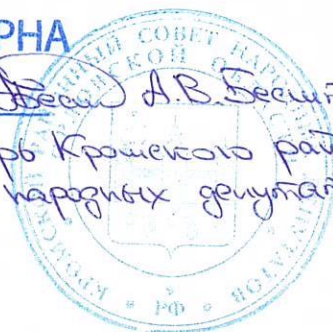 РНА
А.В.
рь Кромского рай
народных депутат
КРОМСКОЙ РАЙОННЫЙ СОВЕТ НАРОДНЫХ ДЕПУТАТОВ
РФ